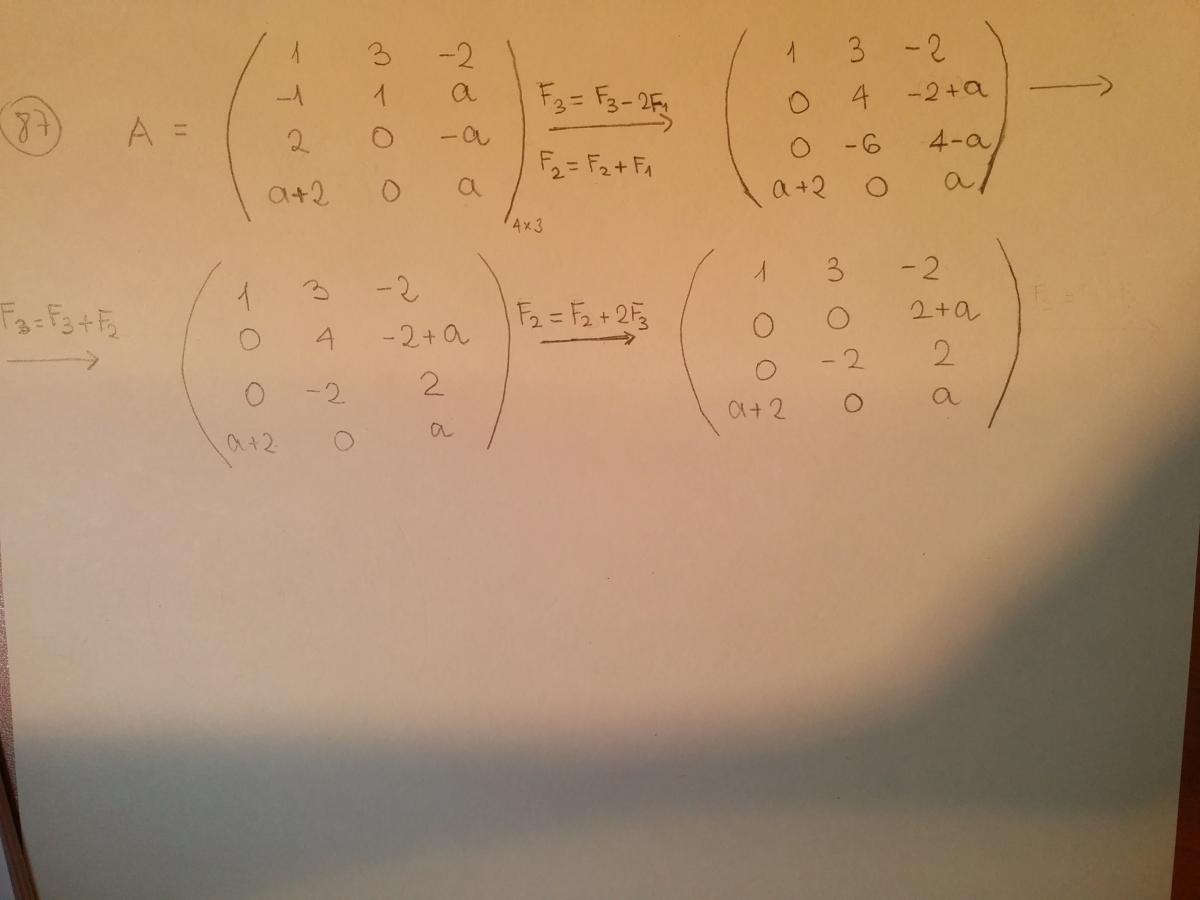 87 A = ( 1 3 -2 ; -1 1 a ; 2 0 -a ; a+2 0 a )4×3 F3 = F3 - 2F1 F2 = F2 + F1 → ( 1 3 -2 ; 0 4 -2+a ; 0 -6 4-a ; a+2 0 a ) →
F3 = F3 + F2 → ( 1 3 -2 ; 0 4 -2+a ; 0 -2 2 ; a+2 0 a ) F2 = F2 + 2F3 → ( 1 3 -2 ; 0 0 2+a ; 0 -2 2 ; a+2 0 a )